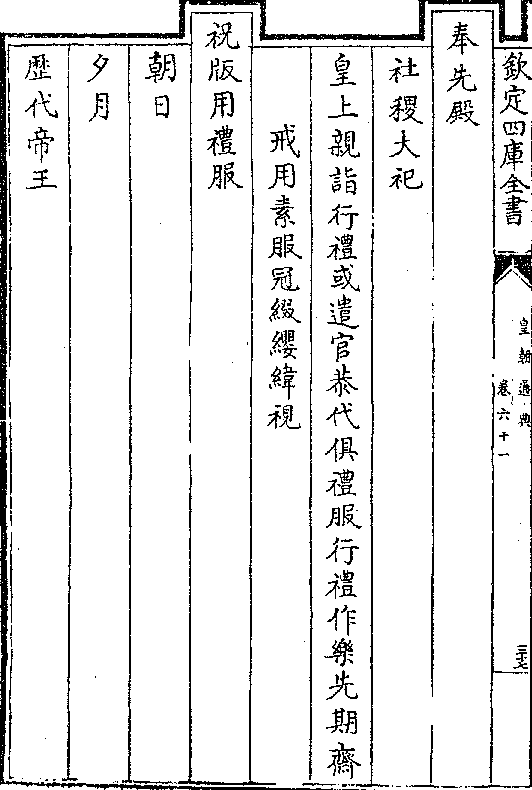 欽定四庫全書
皇朝通典
卷六十一
三十七
奉先殿
社稷大祀
皇上親詣行禮或遣官恭代俱禮服行禮作樂先期齋
戒用素服冠綴纓緯視
祝版用禮服
朝日
夕月
歷代帝王